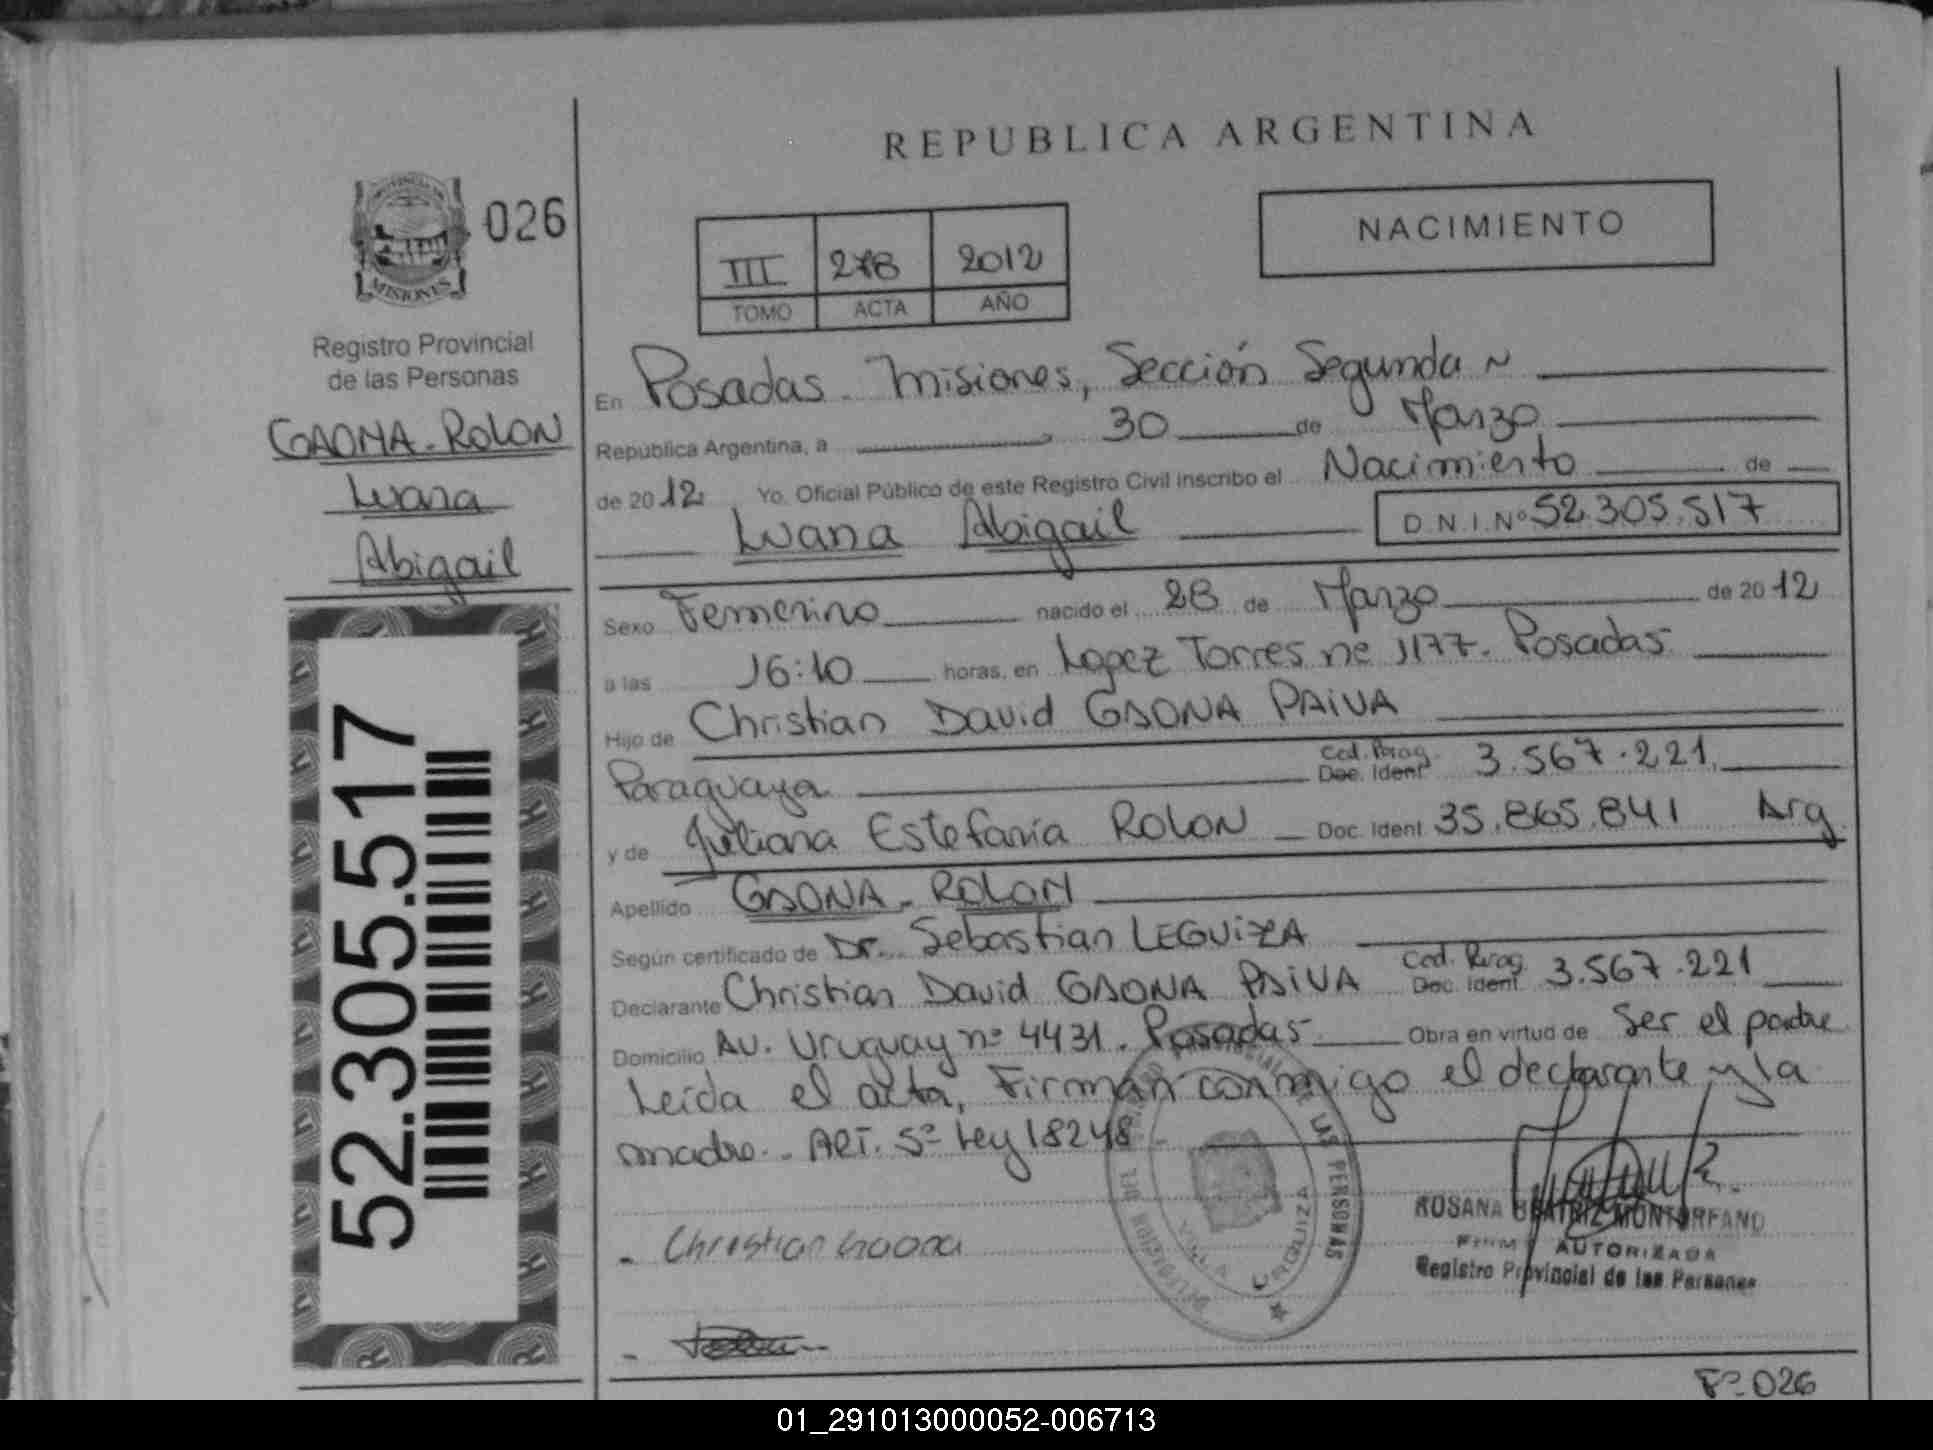 REPUBLICA ARGENTINA
NACIMIENTO
PROVINCIA DE
MISIONES
026
III 278 2012
TOMO ACTA AÑO
Registro Provincial
de las Personas
GAONA-ROLON
Luana
Abigail
52.305.517
En Posadas. Misiones, Sección Segunda
República Argentina, a 30 de Marzo
de 2012 Yo. Oficial Público de este Registro Civil inscribo el Nacimiento de
Luana Abigail D.N.I.Nº 52.305.517
Sexo Femenino nacido el 28 de Marzo de 2012
a las 16:10 horas, en Lopez Torres nº 1177. Posadas
Hijo de Christian David GAONA PAIVA
Paraguaya Ced. Parag. Doc. Ident 3.567.221
y de Juliana Estefanía ROLON Doc. Ident 35.865.841 Arg
Apellido GAONA-ROLON
Según certificado de Dr. Sebastian LEGUIZA
Declarante Christian David GAONA PAIVA Ced. Parag. Doc. Ident 3.567.221
Domicilio Av. Uruguay nº 4431. Posadas Obra en virtud de Ser el padre
Leída el acta, Firman conmigo el declarante y la
madre.- ART. 5º Ley 18248
- Christian Gaona
DELEGACION DEL REGISTRO PROVINCIAL DE LAS PERSONAS
VILLA URQUIZA
ROSANA BEATRIZ MONTORFANO
FIRMA AUTORIZADA
Registro Provincial de las Personas
Fº 026
01_291013000052-006713